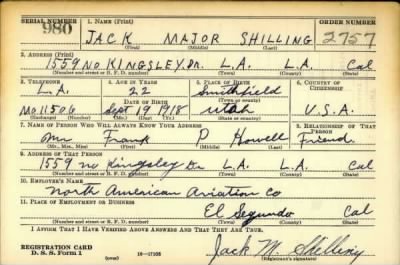 SERIAL NUMBER 1. NAME (Print) ORDER NUMBER
980 JACK MAJOR SHILLING 2757
(First) (Middle) (Last)
2. ADDRESS (Print)
1559 no KINGSLEY Dr. L.A. L.A. Cal
(Number and street or R. F. D. number) (Town) (County) (State)
3. TELEPHONE 4. AGE IN YEARS 5. PLACE OF BIRTH 6. COUNTRY OF CITIZENSHIP
L.A. 22 Smithfield
DATE OF BIRTH (Town or county)
MO 11506 Sept 19 1918 Utah U.S.A.
(Exchange) (Number) (Mo.) (Day) (Yr.) (State or country)
7. NAME OF PERSON WHO WILL ALWAYS KNOW YOUR ADDRESS 8. RELATIONSHIP OF THAT PERSON
Mr Frank P Howell Friend
(Mr., Mrs., Miss) (First) (Middle) (Last)
9. ADDRESS OF THAT PERSON
1559 no Kingsley Dr L.A. L.A. Cal
(Number and street or R. F. D. number) (Town) (County) (State)
10. EMPLOYER'S NAME
North American Aviation Co
11. PLACE OF EMPLOYMENT OR BUSINESS
El Segundo Cal
(Number and street or R. F. D. number) (Town) (County) (State)
I AFFIRM THAT I HAVE VERIFIED ABOVE ANSWERS AND THAT THEY ARE TRUE.
REGISTRATION CARD
D. S. S. Form 1 (over) 16—17105 Jack M. Shilling
(Registrant's signature)